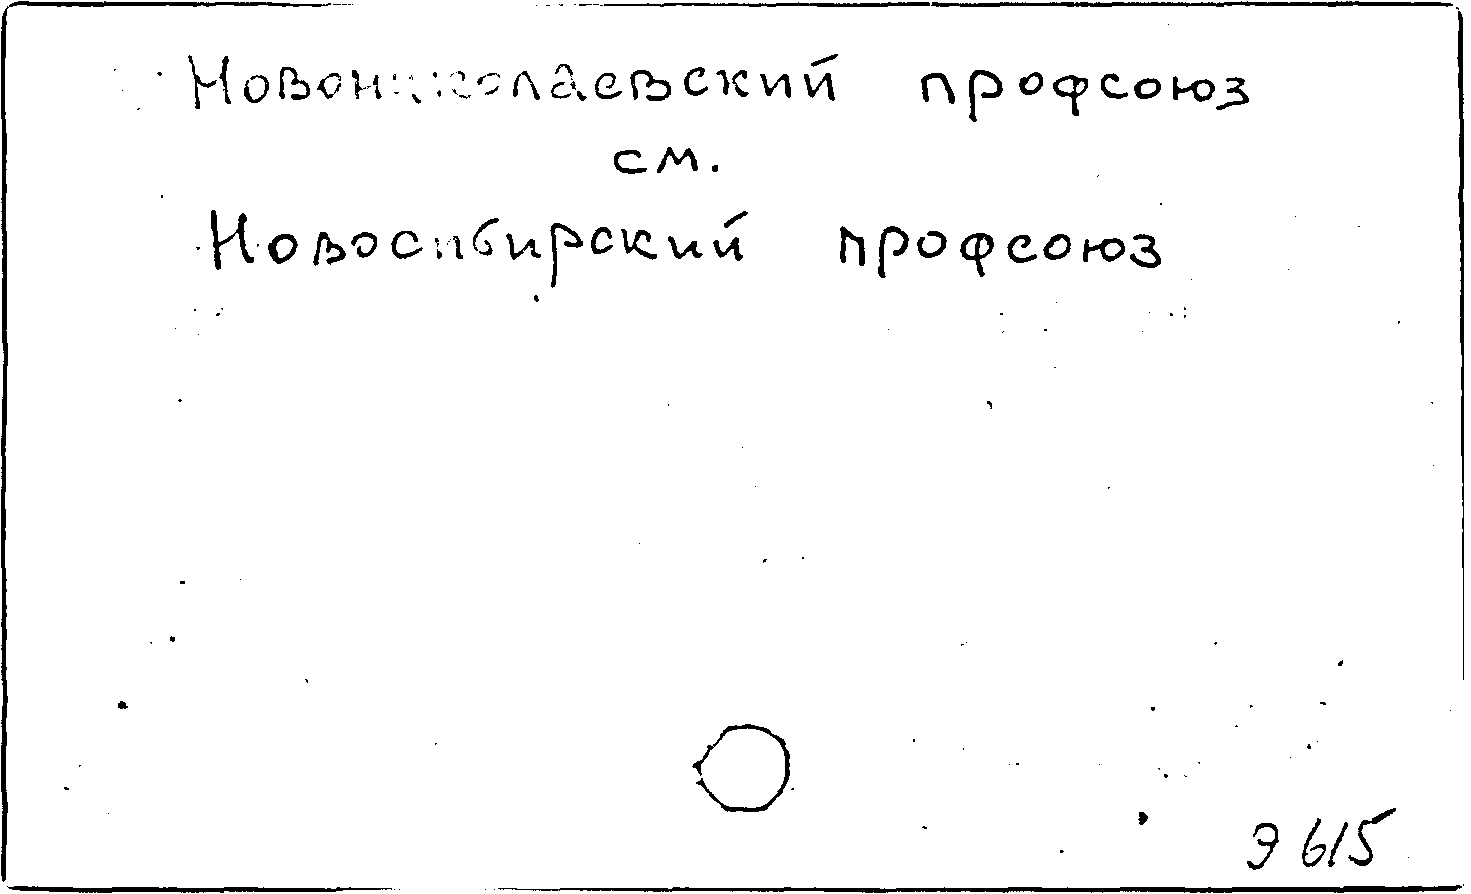 Новониколаевский профсоюз
см.
Новосибирский профсоюз
Э 615